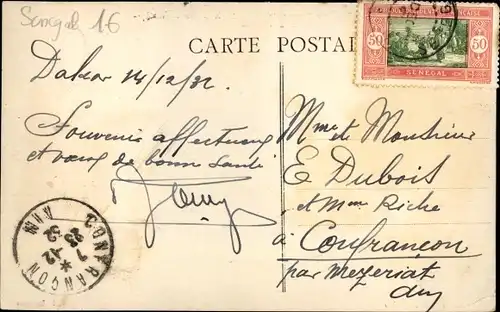 Senegal 16
CARTE POSTAL
50 50
SENEGAL
Dakar 14/12/32
Souvenir affectueux
et vœux de bonne santé
Mme et Monsieur
E Dubois
et Mme Riche
à Confrançon
par Mezeriat
Ain
CONFRANÇON
AIN
7 * 12
23
32